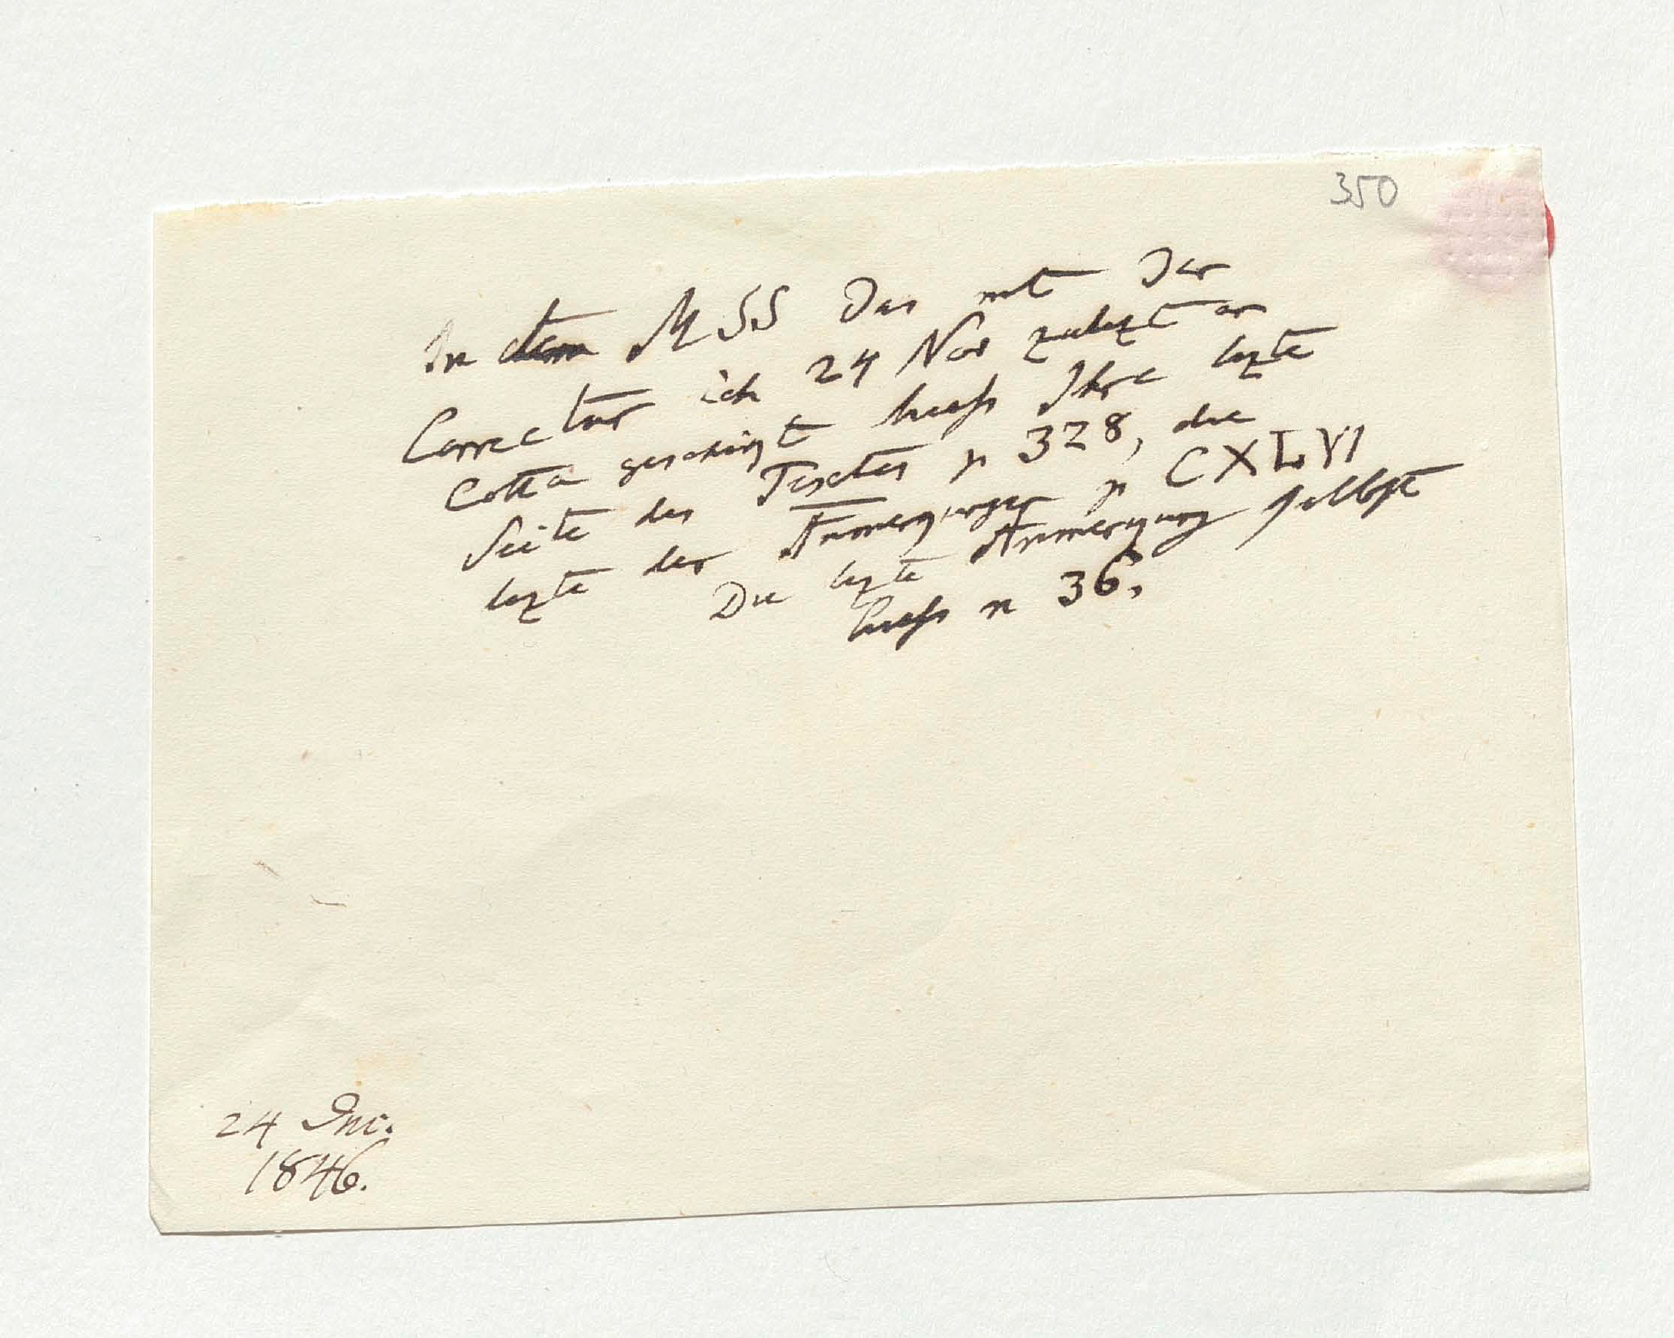 350
In dem MSS das mit der
Correctur ich 24 Nov zulezt an
Cotta geschikt hiess Ihre lezte
Seite des Textes p 328, die
lezte der Anmerkungen p CXLVI
Die lezte Anmerkung selbst
hiess n 36.
24 Dec.
1846.